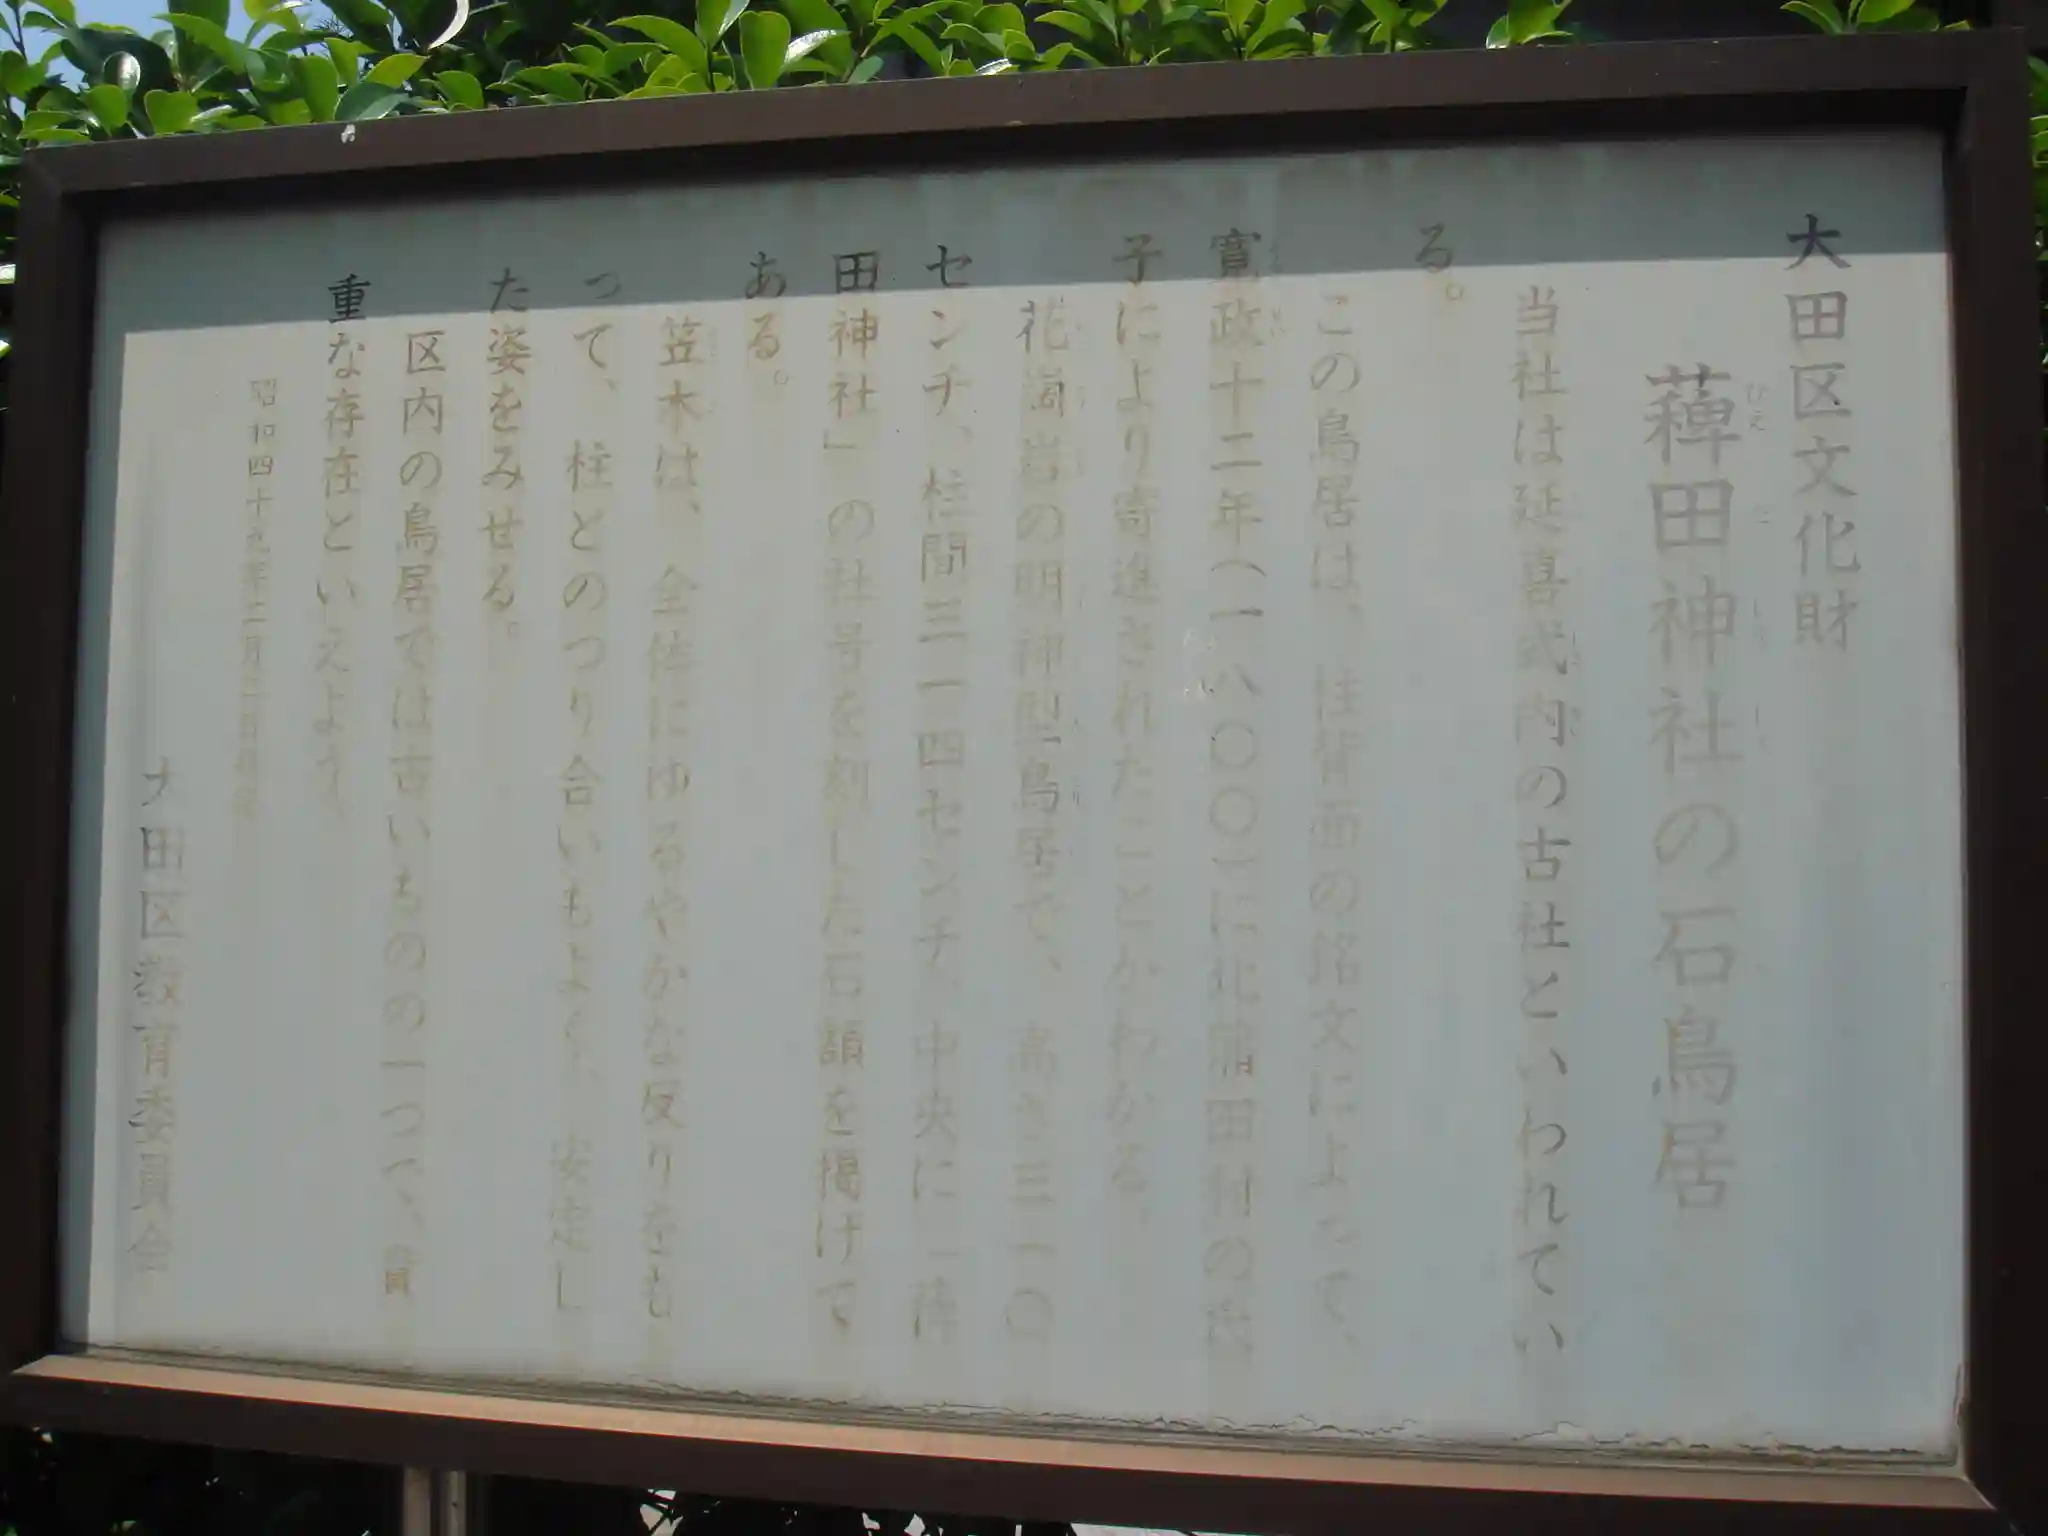 大田区文化財
薭田神社の石鳥居
当社は延喜式内の古社といわれてい
る。
この鳥居は、柱背面の銘文によって、
寛政十二年(一八〇〇)に北蒲田村の氏
子により寄進されたことがわかる。
花崗岩の明神型鳥居で、高さ三一〇
センチ、柱間三一四センチ、中央に「薭
田神社」の社号を刻した石額を掲げて
ある。
笠木は、全体にゆるやかな反りをも
って、柱とのつり合いもよく、安定し
た姿をみせる。
区内の鳥居では古いものの一つで、貴
重な存在といえよう。
昭和四十九年二月二日
大田区教育委員会